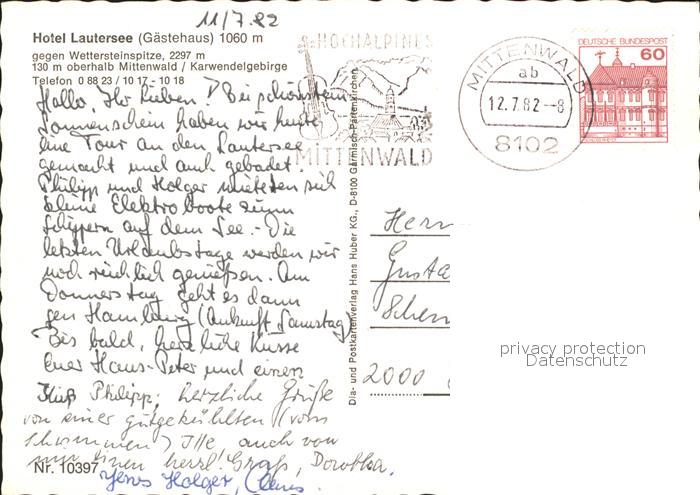 11/7.82
Hotel Lautersee (Gästehaus) 1060 m
gegen Wettersteinspitze, 2297 m
130 m oberhalb Mittenwald / Karwendelgebirge
Telefon 0 88 23 / 10 17 - 10 18
Hallo, Ihr Lieben! Bei schönstem
Sonnenschein haben wir heute
eine Tour an den Lautersee
gemacht und auch gebadet.
Philipp und Holger mieteten sich
kleine Elektroboote zum
Schippern auf dem See. - Die
letzten Urlaubstage werden wir
noch reichlich genießen. Am
Donnerstag geht es dann
gen Hamburg (Ankunft Samstag)
Bis bald, herzliche Küsse
Euer Hans-Peter und einen
Kuß Philipp, herzliche Grüße
von einer gutgekühlten (vom
Schwimmen) auch von
einen herzl. Gruß, Dorothea,
Holger,
Nr. 10397
Dia- und Postkartenverlag Hans Huber KG., D-8100 Garmisch-Partenkirchen
HOCHALPINES
MITTENWALD
MITTENWALD
ab
12.7.82--8
8102
DEUTSCHE BUNDESPOST
60
Herrn
Gusta
Schen
2000
privacy protection
Datenschutz